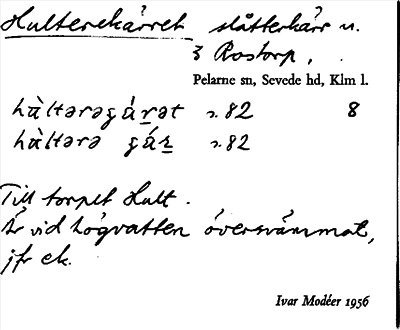 Hulterekärret slåtterkärr u.
& Rostorp,
Pelarne sn, Sevede hd, Klm l.
hu̇̀ltərəgȧ́rət s. 82 8
hu̇̀ltərə gár s. 82
Till torpet Hult.
Är vid högvatten översvämmat,
jfr ek.
Ivar Modéer 1956